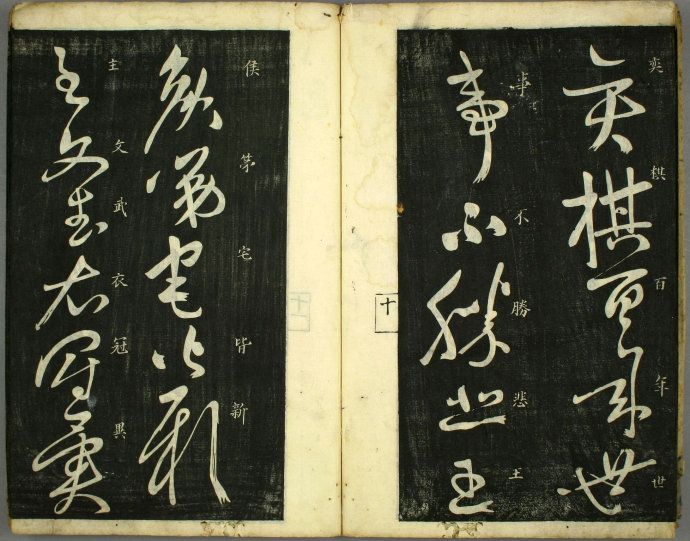 奕棋百年世
奕棋百年世
事不勝悲王
事不勝悲王
十
侯第宅皆新
侯第宅皆新
主文武衣冠異
主文武衣冠異